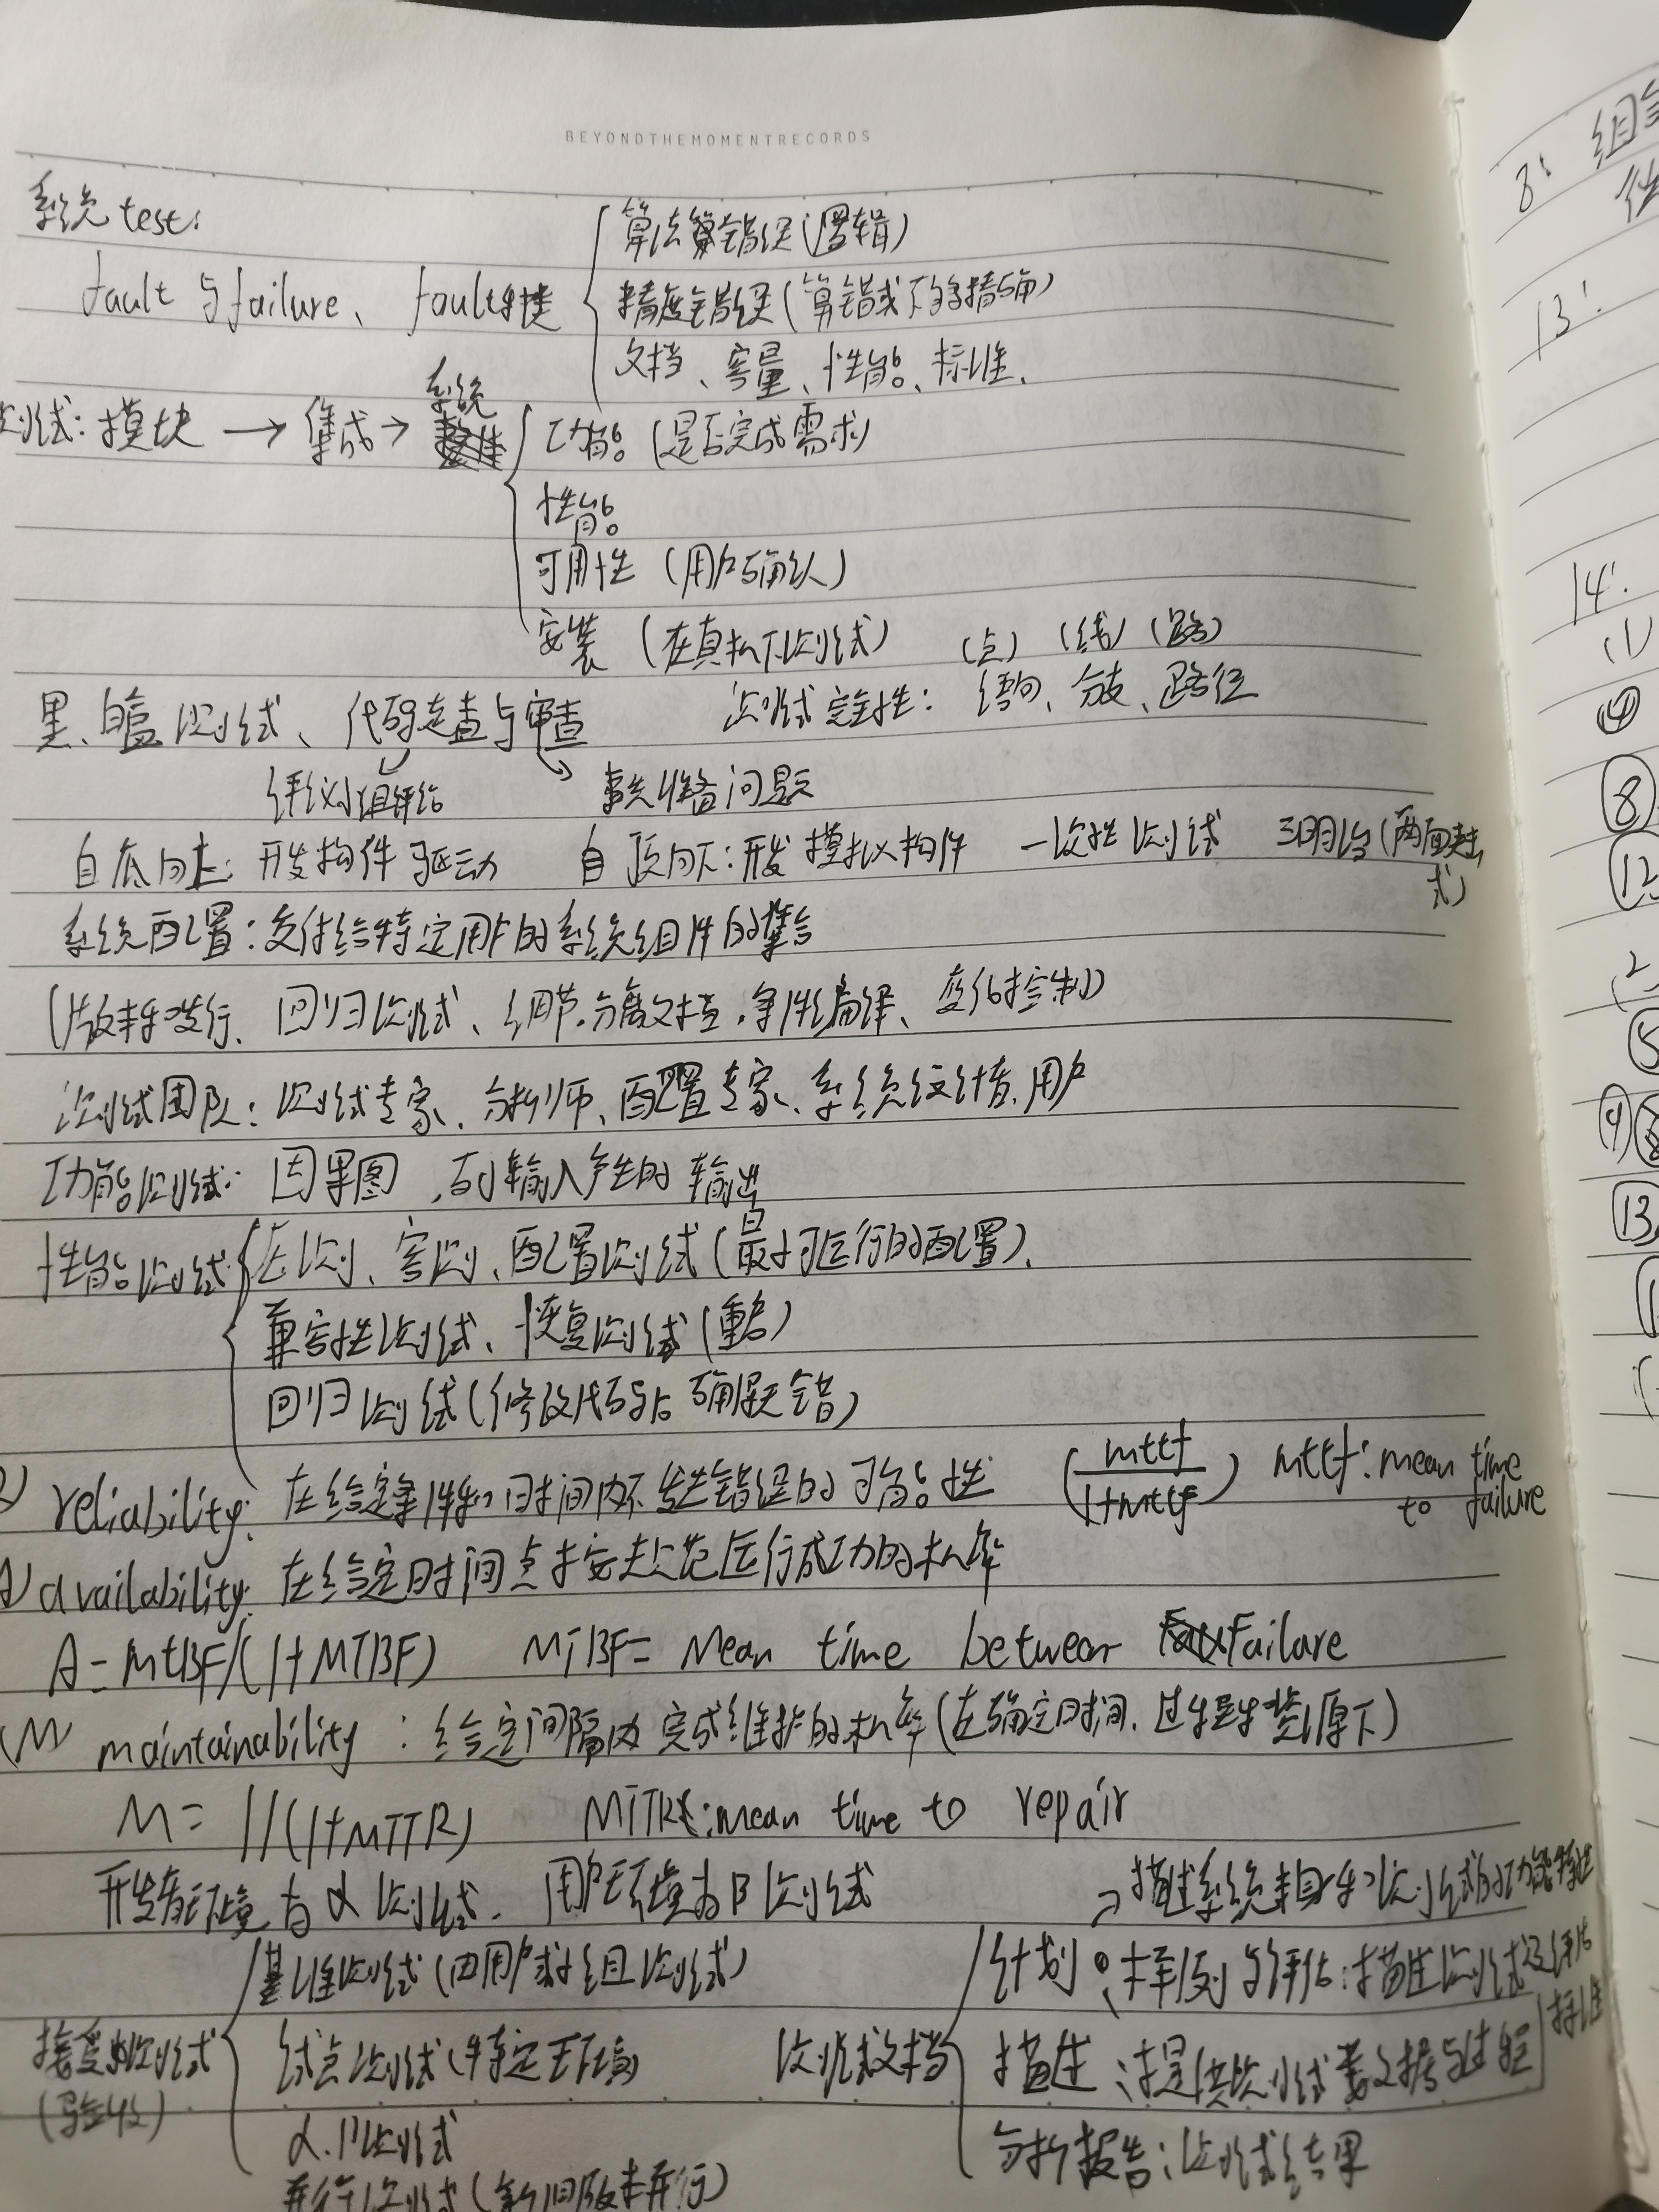 BEYONDTHEMOMENTRECORDS
系统 test:
fault 与 failure、 fault种类
算法错误(逻辑)
精度错误(算错或不够精确)
文档、容量、性能、标准、
测试: 模块 → 集成 → 系统
功能 (是否完成需求)
性能
可用性 (用户确认)
安装 (在真机下测试)
(点) (线) (路)
黑、白盒测试、代码走查与审查 测试完全性: 语句、分支、路径
评议小组评论 事先准备问题
自底向上: 开发构件驱动 自顶向下: 开发模拟构件 一次性测试 三明治(两面夹击式)
系统配置: 交付给特定用户的系统组件的集合
(版本与发行、回归测试、细节、分离文档、条件编译、变化控制)
测试团队: 测试专家、分析师、配置专家、系统设计者、用户
功能测试: 因果图、 输入产生的输出
性能测试 压测、容测、配置测试(最 可运行的配置)、
兼容性测试、恢复测试(重启)
回归测试(修改代码后确保无错)
(R) reliability: 在给定条件和时间内不发生错误的可能性 (mttf/1+mttf) mttf: mean time to failure
(A) availability: 在给定时间点按规范运行成功的机率
A=MtBF/(1+MTBF) MTBF= Mean time between Failare
(M) maintainability : 给定间隔内完成维护的机率(在确定时间、过程与资源下)
M= 1/(1+MTTR) MTTR:mean time to repair
开发者环境为α测试、用户环境为β测试
接受测试
(验收)
基准测试(由用户或小组测试)
试点测试(特定环境)
α、β测试
并行测试(新旧版本并行)
测试文档
计划
描述系统本身和测试的功能特性
样例与评估: 描述测试及评估标准
描述: 提供测试 数据与过程
分析报告: 测试结果
8: 组
13:
14:
(1)
④
⑧
⑫
⑤
⑨
⑬